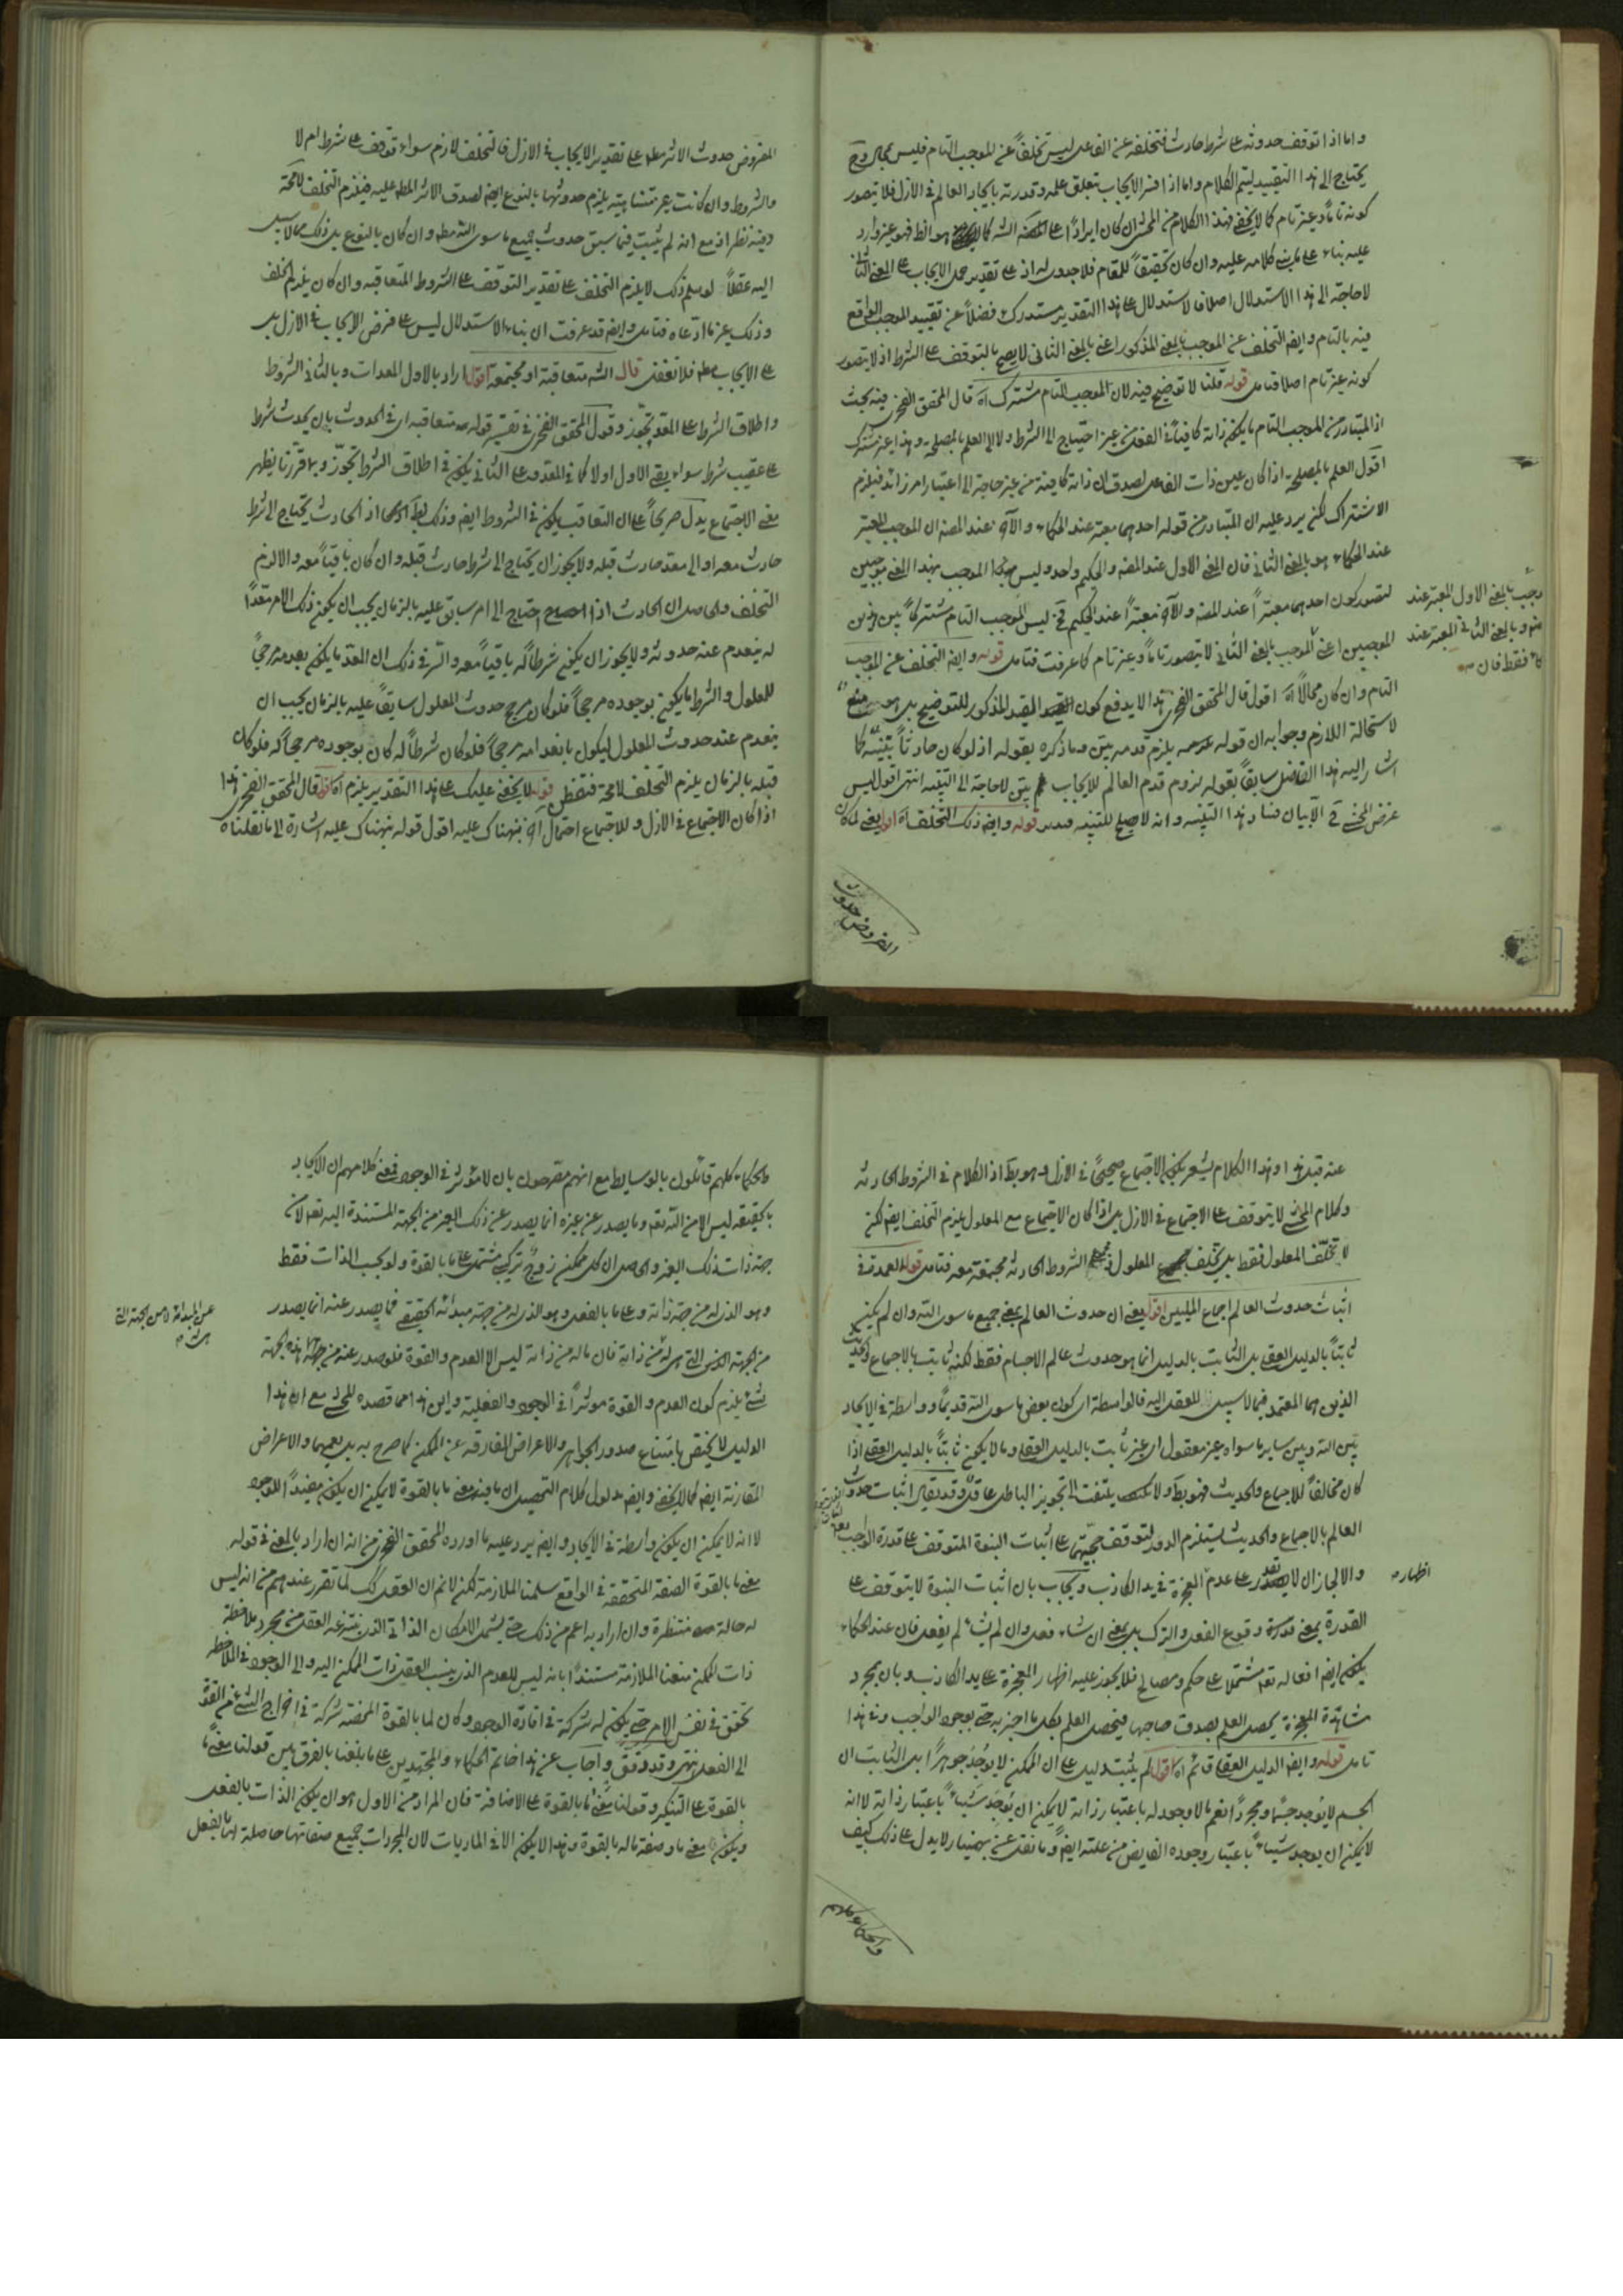 واما اذا توقف حدوثه على شرط حادث فتخلفه عن الفاعل ليس تخلفاً عن الموجب التام فليس بمحال وح
يحتاج الى هذا التقييد ليتم الكلام واما اذا فسر الايجاب بتعلق علمه وقدرته بايجاد العالم فى الازل فلا يتصور
كونه تاماً وغير تام كما لا يخفى فهذا الكلام من المحشى ان كان ايراداً على المص الش كما هو الظ فهو غير وارد
عليه بناء على كلامه عليه وان كان تحقيقاً للمقام فلا جدوى له اذ على تقدير حمل الايجاب على المعنى الثانى
لا حاجة الى هذا الاستدلال اصلا فالاستدلال على هذا التقدير مستدرك فضلاً عن تقييد الموجب الواقع
فيه بالتام وايض التخلف عن الموجب بالمعنى المذكور اعنى بالمعنى الثانى لا يصح بالتوقف على الشرط اذ لا يتصور
كونه غير تام اصلا فتامل قوله قلنا لا توضيح فيه لان الموجب التام مشترك اه قال المحقق الفخرى فيه بحث
اذ المتبادر من الموجب التام ما يكون ذاته كافياً فى الفعل من غير احتياج الى الشرط ولا الى العلم بالمصلحة وهذا غير مشترك
اقول العلم بالمصلحة اذا كان عين ذات الفاعل لصدق ان ذاته كافية من غير حاجة الى اعتبار امر زائد فيلزم
الاشتراك لكن يرد عليه ان المتبادر من قوله احدهما معتبر عند الحكماء والآخر عند المص ان الموجب المعتبر
عند الحكماء هو بالمعنى الثانى فان المعنى الاول عند المص والحكيم واحد وليس الموجب بهذا المعنى موجبين
ليتصور كون احدهما معتبراً عند المص والآخر معتبراً عند الحكيم فح ليس الموجب التام مشتركاً بين هذين
الموجبين اعنى الموجب بالمعنى الثانى لا يتصور تاماً وغير تام كما عرفت فتامل قوله وايض التخلف عن الموجب
التام وان كان محالاً اه اقول قال المحقق الفخرى هذا لا يدفع كون القيد المذكور للتوضيح بل هو منع
لاستحالة اللازم وجوابه ان قوله يلزم قدمه بين وما ذكره بقوله اذ لو كان حادثاً تنبيه كما
اشار اليه هذا الفاضل سابقاً بقوله لزوم قدم العالم للايجاب بين لا حاجة الى التنبيه انتهى اقول ليس
غرض المحشى ح الا بيان فساد هذا التنبيه وانه لا يصلح للتنبيه فتدبر قوله وايض ذلك التخلف اه اقول يعنى لما كان
وجب بالمعنى الاول المعتبر عند
هو وبالمعنى الثانى المعتبر عند
فقط فان
المفروض حدوث
المفروض حدوث الاثر مط على تقدير الايجاب فى الازل فالتخلف لازم سواء توقف على شرط ام لا
والشروط وان كانت غير متناهية يلزم حدوثها بالنوع ايض لصدق الاثر المط عليه فيلزم التخلف لا محة
وفيه نظر اذ مع انه لم يثبت فيما سبق حدوث جميع ما سوى الله مط وان كان بالنوع بل ذلك مما لا سبيل
اليه عقلاً لو سلم ذلك لا يلزم التخلف على تقدير التوقف على الشروط المتعاقبة وان كان يلزم الخلف
وذلك غير ما ادعاه فتامل وايض قد عرفت ان بناء الاستدلال ليس على فرض الايجاب فى الازل بل
على الايجاب مط فلا تغفل قال الش متعاقبة او مجتمعة اقول اراد بالاول المعدات وبالثانى الشروط
واطلاق الشرط على المعد تجوز وقول المحقق الفخرى فى تفسير قوله متعاقبة اى فى الحدوث بان يحدث شرط
على عقيب شرط سواء بقى الاول اولا كما فى المعد ومع الثانى يكون فى اطلاق الشروط تجوز وبما قررنا يظهر
معنى الاجتماع يدل صريحاً على ان التعاقب يكون فى الشروط ايض وذلك بط اذ الحادث يحتاج الى شرط
حادث معه او الى معد حادث قبله ولا يجوز ان يحتاج الى شرط حادث قبله وان كان باقياً معه والا لزم
التخلف والحاصل ان الحادث اذا احتاج الى امر سابق عليه بالزمان يجب ان يكون ذلك الامر معداً
له ينعدم عند حدوثه ولا يجوز ان يكون شرطاً له باقياً معه والسر فى ذلك ان المعد ما يكون بعدمه مرجحاً
للمعلول والشرط ما يكون بوجوده مرجحاً فلو كان مرجح حدوث المعلول سابقاً عليه بالزمان يجب ان
ينعدم عند حدوث المعلول ليكون بانعدامه مرجحاً فلو كان شرطاً له كان بوجوده مرجحاً له فلو كان
قبله بالزمان يلزم التخلف لا محة فتفطن قوله لا يخفى عليك على هذا التقدير يلزم اه اقول قال المحقق الفخرى هذا
اذا كان الاجتماع فى الازل وللاجتماع احتمال آخر نبهناك عليه اقول قوله نبهناك عليه اشارة الى ما نقلناه
عنه قبل هذا وهذا الكلام يشعر بكون الاجتماع صحيحاً فى الازل وهو بط اذ الكلام فى الشروط الحادثة
وكلام المحشى لا يتوقف على الاجتماع فى الازل بل اذا كان الاجتماع مع المعلول يلزم التخلف ايض لكن
لا تخلف المعلول فقط بل تخلف المعلول مع الشروط الحادثة مجتمعة معه فتامل قوله العمدة فى
اثبات حدوث العالم اجماع المليين اقول يعنى ان حدوث العالم بمعنى جميع ما سوى الله وان لم يكن
ثابتاً بالدليل العقلى بل الثابت بالدليل انما هو حدوث عالم الاجسام فقط لكنه ثابت بالاجماع والحديث
الذين هما المعتمد فيما لا سبيل للعقل اليه فالواسطة اى كون بعض ما سوى الله قديماً وواسطة فى الايجاد
بين الله وبين ساير ما سواه غير معقول اى غير ثابت بالدليل العقلى وما لا يكون ثابتاً بالدليل العقلى اذا
كان مخالفاً للاجماع والحديث فهو بط ولا يلتفت الى تجويز الباطل عاقل وقد يقال اثبات حدوث
العالم بالاجماع والحديث يستلزم الدور لتوقف حجيتهما على اثبات النبوة المتوقف على قدرة الواجب تعالى
والا لجاز ان لا يقدر على عدم المعجزة فى يد الكاذب ويجاب بان اثبات النبوة لا يتوقف على
القدرة بمعنى وقوع الفعل والترك بل بمعنى ان شاء فعل وان لم يشاء لم يفعل فان عند الحكماء
يكون ايض افعاله تعم مشتملا على حكم ومصالح فلا يجوز عليه اظهار المعجزة على يد الكاذب وبان بمجرد
مشاهدة المعجزة يحصل العلم بصدق صاحبها فيحصل العلم بكل ما اخبر به حتى بوجود الواجب وفى هذا
تامل قوله وايض الدليل العقلى قائم اه اقول لم يثبت دليل على ان الممكن لا يوجد جوهراً بل الثابت ان
الجسم لا يوجد جسماً ومجرداً نعم ما لا وجود له باعتبار ذاته لا يمكن ان يوجد شيئاً باعتبار ذاته لا انه
لا يمكن ان يوجد شيئاً باعتبار وجوده الفايض من علته ايضاً وما نقل عن بهمنيار لا يدل على ذلك كيف
اظهاره
والحكماء كلهم
والحكماء كلهم قائلون بالوسايط مع انهم مصرحون بان لا مؤثر فى الوجود فمعنى كلامهم ان الايجاد
بالحقيقة ليس الا من الله تعم وما يصدر عن غيره انما يصدر عن ذلك الغير من الجهة المستندة اليه تعم لا من
جهة ذات ذلك الغير والحاصل ان كل ممكن زوج تركيبى مشتمل على ما بالقوة ولو بحسب الذات فقط
وهو الذى له من جهة ذاته وعلى ما بالفعل وهو الذى له من جهة مبدائه الحقيقى فما يصدر عنه انما يصدر
من الجهة التى هى له من ذاته فان ماله من ذاته ليس الا العدم والقوة فلو صدر عنه من هذه الجهة
شىء يلزم كون العدم والقوة موثراً فى الوجود والفعلية واين هذا مما قصده المحشى مع ان هذا
الدليل لا يختص بامتناع صدور الجواهر والاعراض المفارقة عن الممكن كما صرح به بل يعمهما والاعراض
المقارنة ايض كما لا يخفى وايض مدلول كلام التحصيل ان ما فيه معنى ما بالقوة لا يمكن ان يكون مفيداً للوجود
لا انه لا يمكن ان يكون واسطة فى الايجاد وايض يرد عليه ما اورده المحقق الفخرى من انه ان اراد بالمعنى فى قوله
معنى ما بالقوة الصفة المتحققة فى الواقع سلمنا الملازمة لكن لانم ان العقل كك لما تقرر عندهم من انه ليس
له حالة منتظرة وان اراد به اعم من ذلك حتى يشمل الامكان الذاتى الذى ينتزعه العقل من مجرد ملاحظة
ذات الممكن منعنا الملازمة مستنداً بانه ليس للعدم الذى ينسب العقل ذات الممكن اليه والى الوجود فى الملاحظة
تحقق فى نفس الامر حتى يكون له شركة فى افادة الوجود وكان لما بالقوة المحضة شركة فى اخراج الشىء من القوة
الى الفعل انتهى وقد وفق واجاب عن هذا خاتم الحكماء والمجتهدين على ما بلغنا بالفرق بين قولنا معنى ما
بالقوة على التنكير وقولنا معنى ما بالقوة على الاضافة فان المراد من الاول هو ان يكون الذات بالفعل
ويكون معنى ما وصفة ماله بالقوة وهذا لا يكون الا فى الماديات لان المجردات جميع صفاتها حاصلة لها بالفعل
عن المبداء لا من الجهة التى
هى له